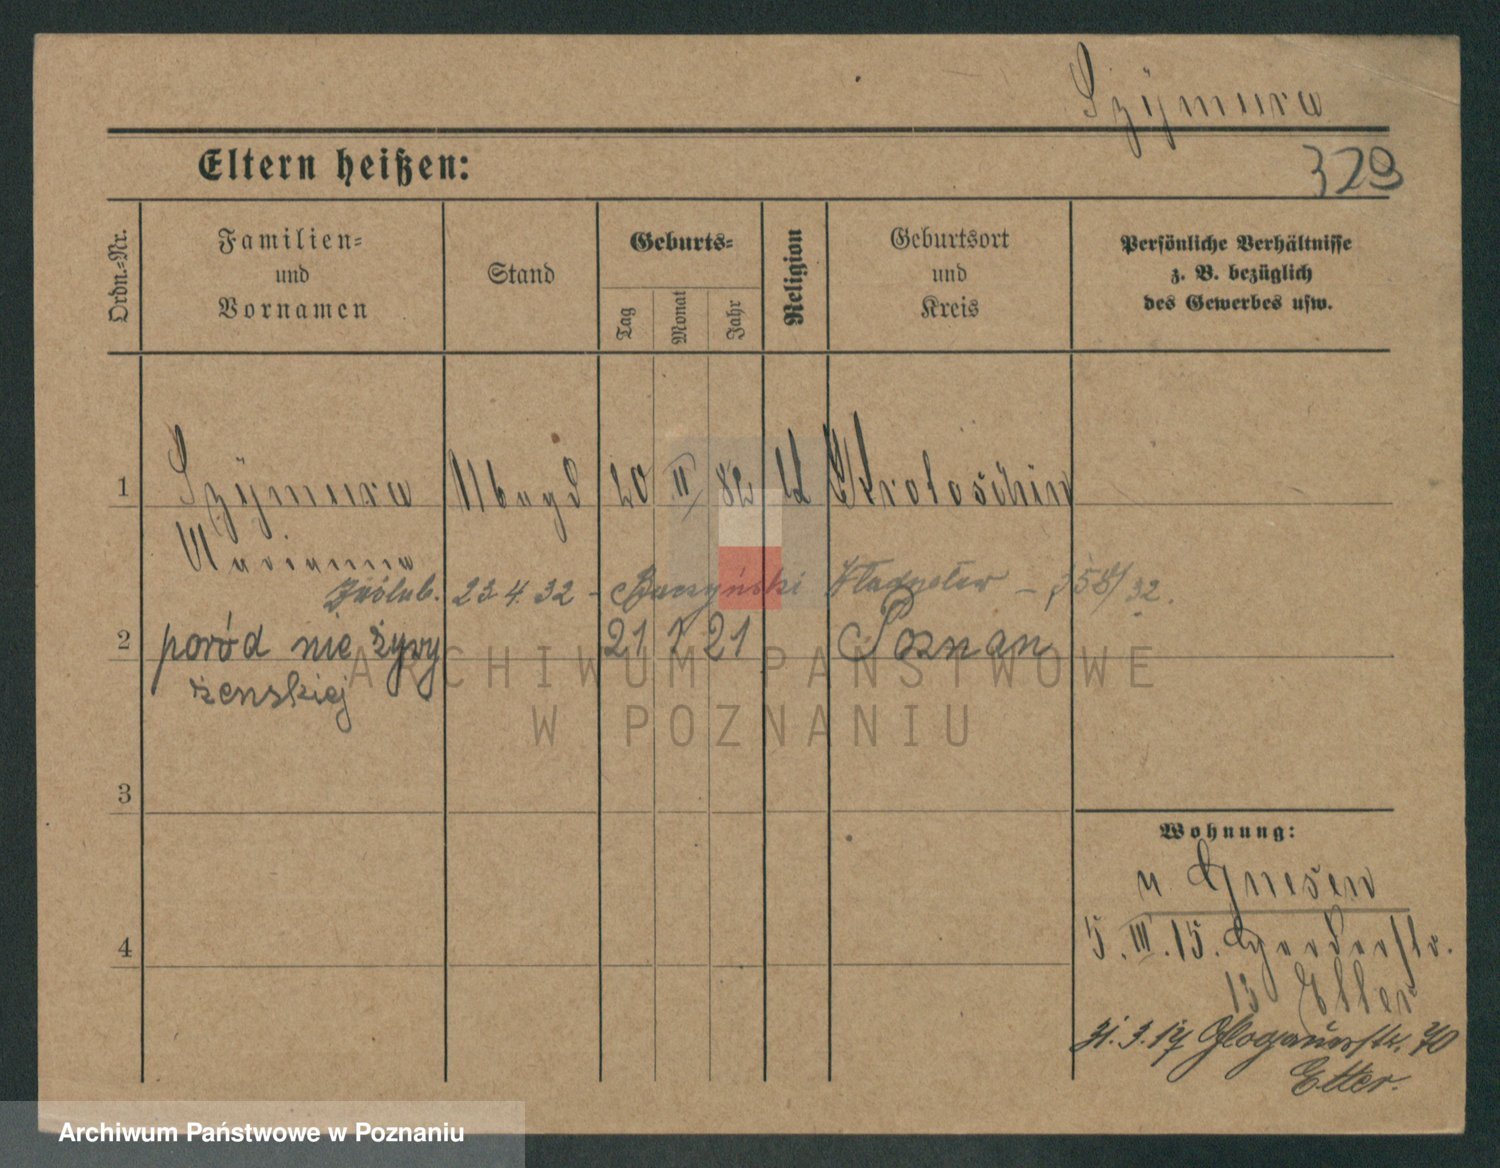 Szÿmura
Eltern heißen:
329
Ordn.=Nr.
Familien=
und
Vornamen
Stand
Geburts=
Tag
Monat
Jahr
Religion
Geburtsort
und
Kreis
Persönliche Verhältnisse
z. B. bezüglich
des Gewerbes usw.
1
Szÿmura Magd 20 II 82 Krotoschin
Marianna
23.4.32 - Baczyński Władysław - 358/32.
2
poród nie żywy 21 1 21 Poznan
żenskiej
ARCHIWUM PAŃSTWOWE
W POZNANIU
3
Wohnung:
v. Gnesen
4
5.III.15. Gerberstr.
13
31.3.17 Glogauerstr. 70
Archiwum Państwowe w Poznaniu